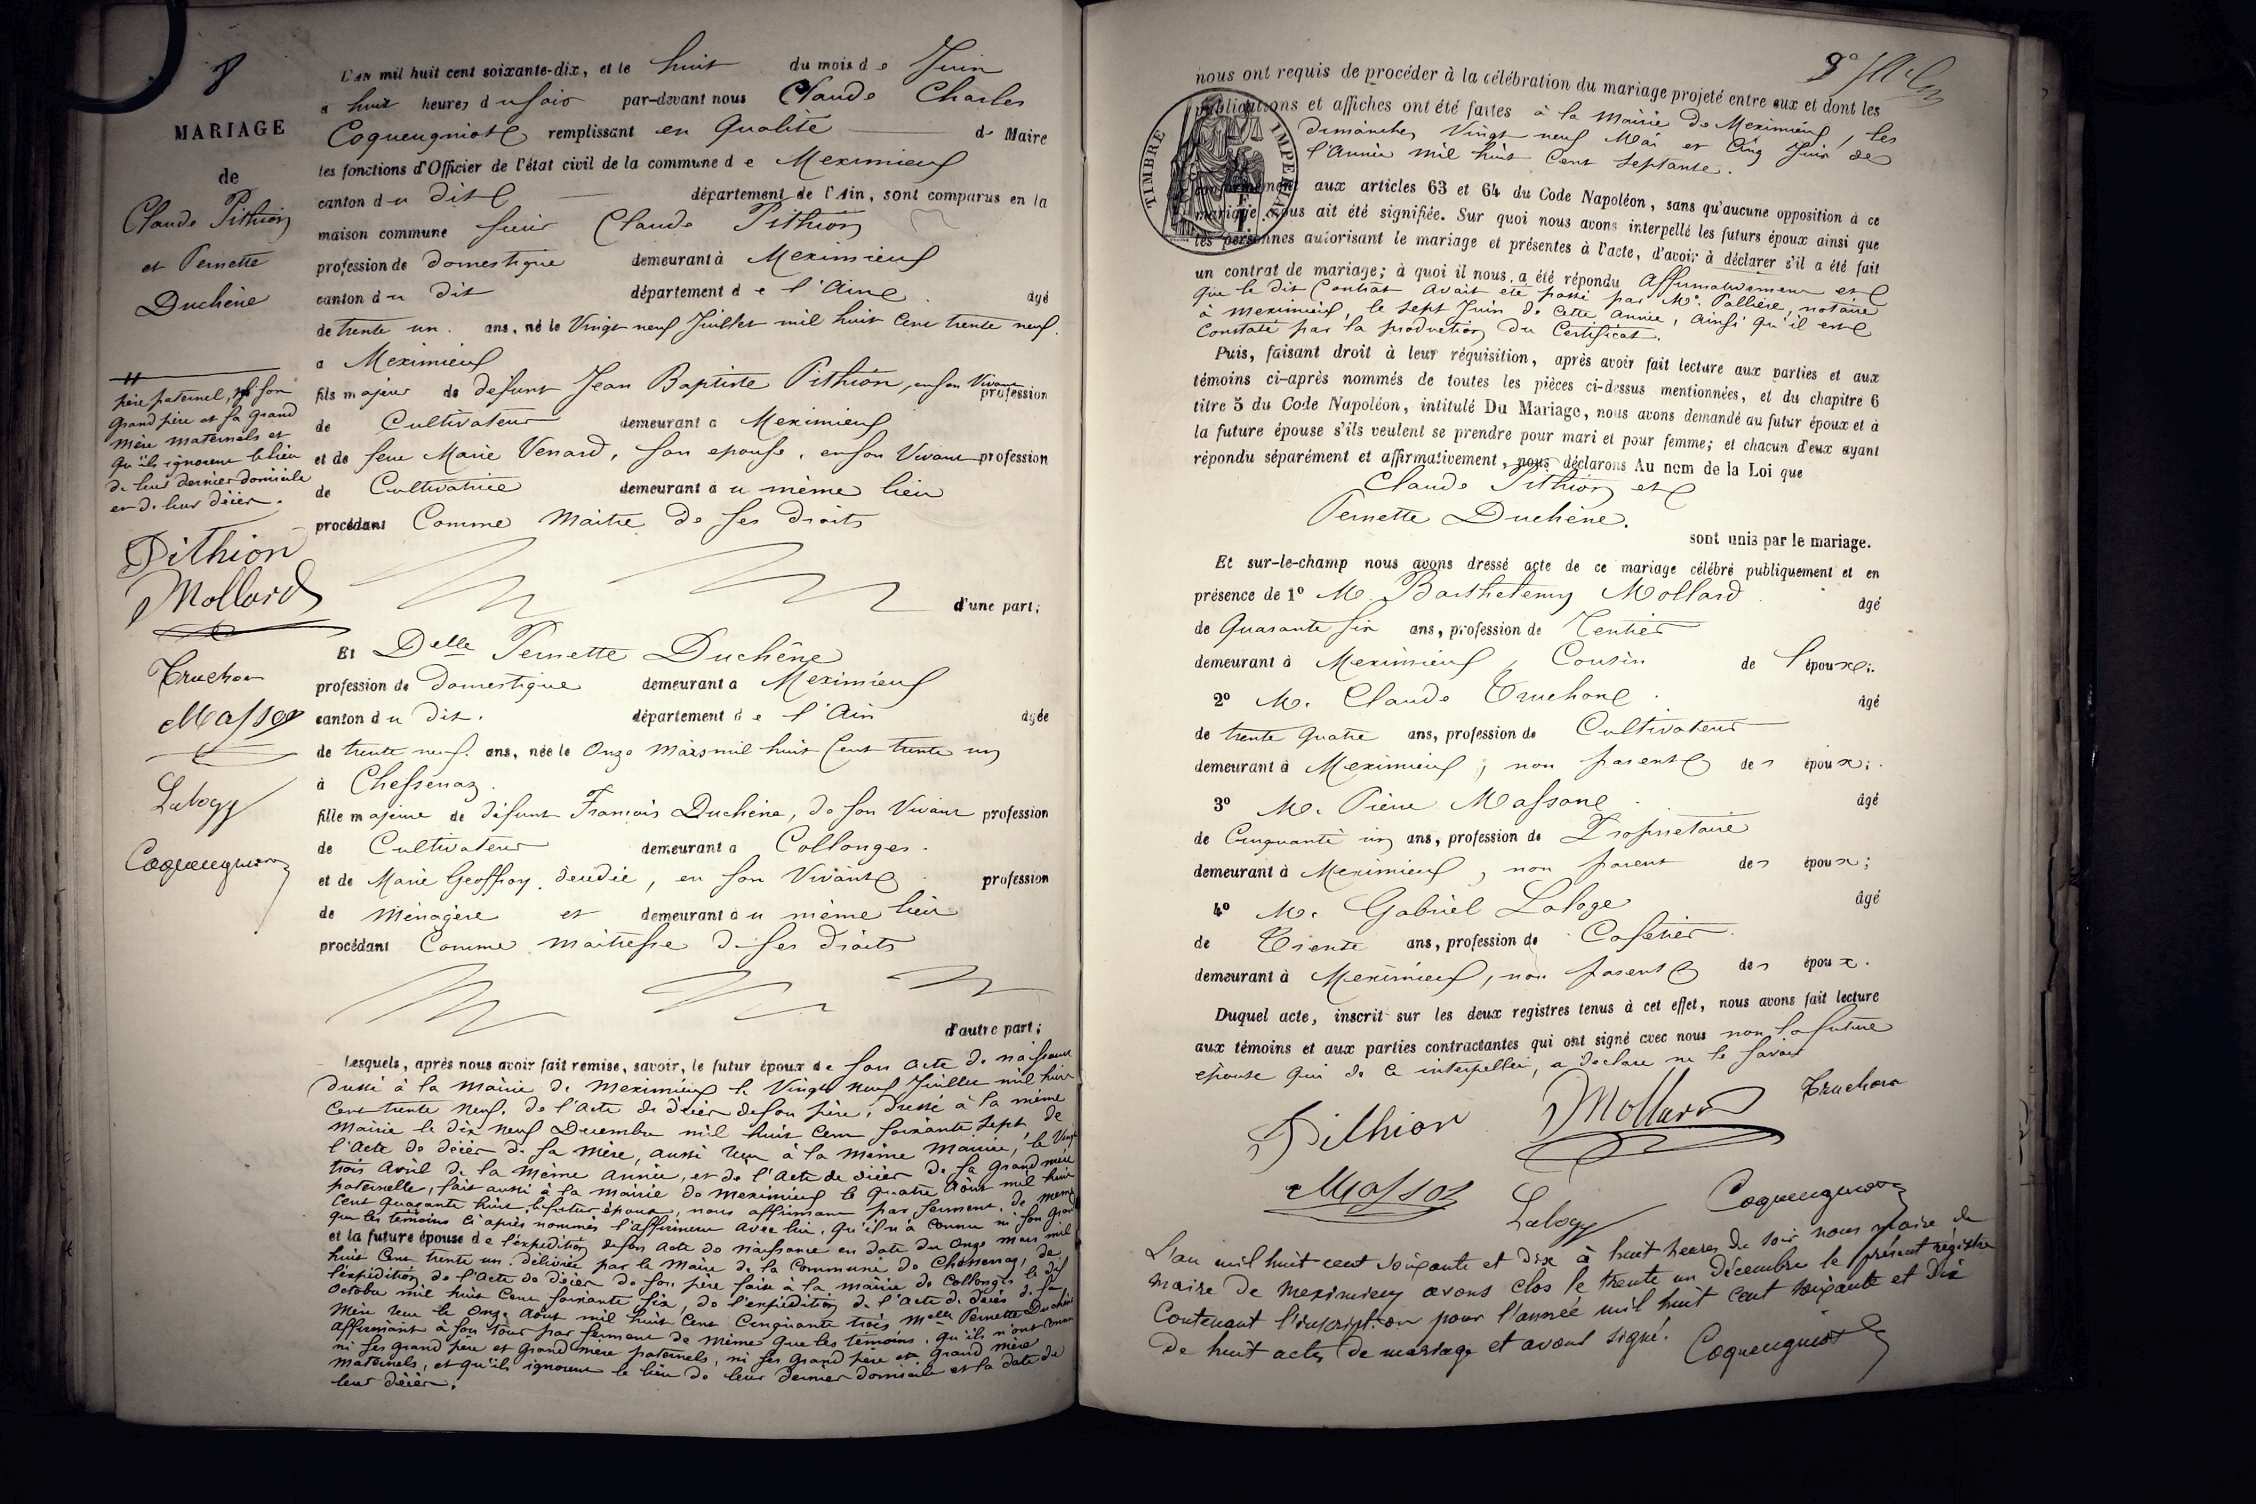 8
MARIAGE
de
Claude Pithion
et Pernette
Duchêne
père paternel, ni son
grand père et sa grand
mère maternels et
qu'ils ignorent le lieu
de leur dernier domicile
et de leur décès.
Pithion
Mollard
Truchon
Masson
Laloge
Coqueugniot
L'AN mil huit cent soixante-dix, et le huit du mois de Juin
a huit heures du soir par-devant nous Claude Charles
Coqueugniot remplissant en Qualité de Maire
les fonctions d'Officier de l'état civil de la commune de Meximieux
canton du dit département de l'Ain, sont comparus en la
maison commune sieur Claude Pithion
profession de domestique demeurant à Meximieux
canton du dit département de l'Ain âgé
de trente un ans, né le Vingt neuf Juillet mil huit Cent trente neuf.
a Meximieux
fils majeur de défunt Jean Baptiste Pithion, en son Vivant profession
de Cultivateur demeurant a Meximieux
et de feue Marie Venard, son epouse, en son Vivant profession
de Cultivatrice demeurant au même lieu
procédant Comme Maitre de ses droits
d'une part;
Et Delle Pernette Duchêne
profession de domestique demeurant a Meximieux
canton du dit. département de l'Ain âgée
de trente neuf. ans, née le Onze Mars mil huit Cent trente un
à Chessenaz.
fille majeure de défunt François Duchêne, de son Vivant profession
de Cultivateur demeurant a Collonges.
et de Marie Geoffroy, décédée, en son Vivant profession
de Ménagère et demeurant au même lieu
procédant Comme maitresse de ses droits
d'autre part;
Lesquels, après nous avoir fait remise, savoir, le futur époux de son acte de naissance
dressé à la Mairie de Meximieux le Vingt neuf Juillet mil huit
Cent trente neuf. de l'acte de décès de son père, dressé à la même
Mairie le dix neuf Decembre mil huit Cent soixante sept de
l'acte de décès de sa mère, aussi reçu à la même Mairie, le Vingt
trois Avril de la même année, et de l'Acte de décès de sa grand mère
paternelle, fait aussi à la mairie de Meximieux le quatre Août mil huit
Cent quarante huit, le futur époux, nous affirmant par serment, de même
que les témoins ci après nommés l'affirment avec lui, qu'il n'a connu ni son grand
et la future épouse de l'expédition de son acte de naissance en date du Onze mars mil
huit Cent trente un. délivrée par le Maire de la Commune de Chessenaz, de
l'expédition de l'acte de décès de son père faite à la mairie de Collonges le dix
Octobre mil huit Cent soixante six, de l'expédition de l'acte de décès de sa
Mère reçu le Onze Août mil huit Cent Cinquante trois Melle Pernette Duchêne
affirmant à son tour par serment de même que les témoins, qu'ils n'ont connu
ni ses grand père et grand mère paternels, ni ses grand père et grand mère
maternels, et qu'ils ignorent le lieu de leur dernier domicile et la date de
leur décès.
nous ont requis de procéder à la célébration du mariage projeté entre eux et dont les
publications et affiches ont été faites à la Mairie de Meximieux, les
dimanches Vingt neuf Mai et Cinq Juin de
l'Année mil huit Cent septante.
TIMBRE IMPERIAL
conformément aux articles 63 et 64 du Code Napoléon, sans qu'aucune opposition à ce
mariage nous ait été signifiée. Sur quoi nous avons interpellé les futurs époux ainsi que
les personnes autorisant le mariage et présentes à l'acte, d'avoir à déclarer s'il a été fait
un contrat de mariage; à quoi il nous a été répondu Affirmativement et
que le dit Contrat avait été passé par Me. Pallière, notaire
à Meximieux, le sept Juin de cette année, ainsi qu'il est
Constaté par la production du Certificat.
Puis, faisant droit à leur réquisition, après avoir fait lecture aux parties et aux
témoins ci-après nommés de toutes les pièces ci-dessus mentionnées, et du chapitre 6
titre 5 du Code Napoléon, intitulé Du Mariage, nous avons demandé au futur époux et à
la future épouse s'ils veulent se prendre pour mari et pour femme; et chacun d'eux ayant
répondu séparément et affirmativement, nous déclarons Au nom de la Loi que
Claude Pithion et
Pernette Duchêne.
sont unis par le mariage.
Et sur-le-champ nous avons dressé acte de ce mariage célébré publiquement et en
présence de 1º M. Barthelemy Mollard âgé
de Quarante six ans, profession de Rentier
demeurant à Meximieux, Cousin de l'époux;
2º M. Claude Truchon âgé
de trente quatre ans, profession de Cultivateur
demeurant à Meximieux, non parent des époux;
3º M. Pierre Masson âgé
de Cinquante un ans, profession de Propriétaire
demeurant à Meximieux, non parent des époux;
4º M. Gabriel Laloge âgé
de Trente ans, profession de Cafetier
demeurant à Meximieux, non parent des époux.
Duquel acte, inscrit sur les deux registres tenus à cet effet, nous avons fait lecture
aux témoins et aux parties contractantes qui ont signé avec nous non la future
épouse qui de ce interpellée, a déclaré ne le savoir
Pithion Mollard Truchon
Masson Laloge Coqueugniot
L'an mil huit cent soixante et dix à huit heures du soir nous maire de
maire de Meximieux avons clos le trente un décembre le présent régistre
Contenant l'inscription pour l'année mil huit cent soixante et dix
de huit actes de mariage et avons signé. Coqueugniot